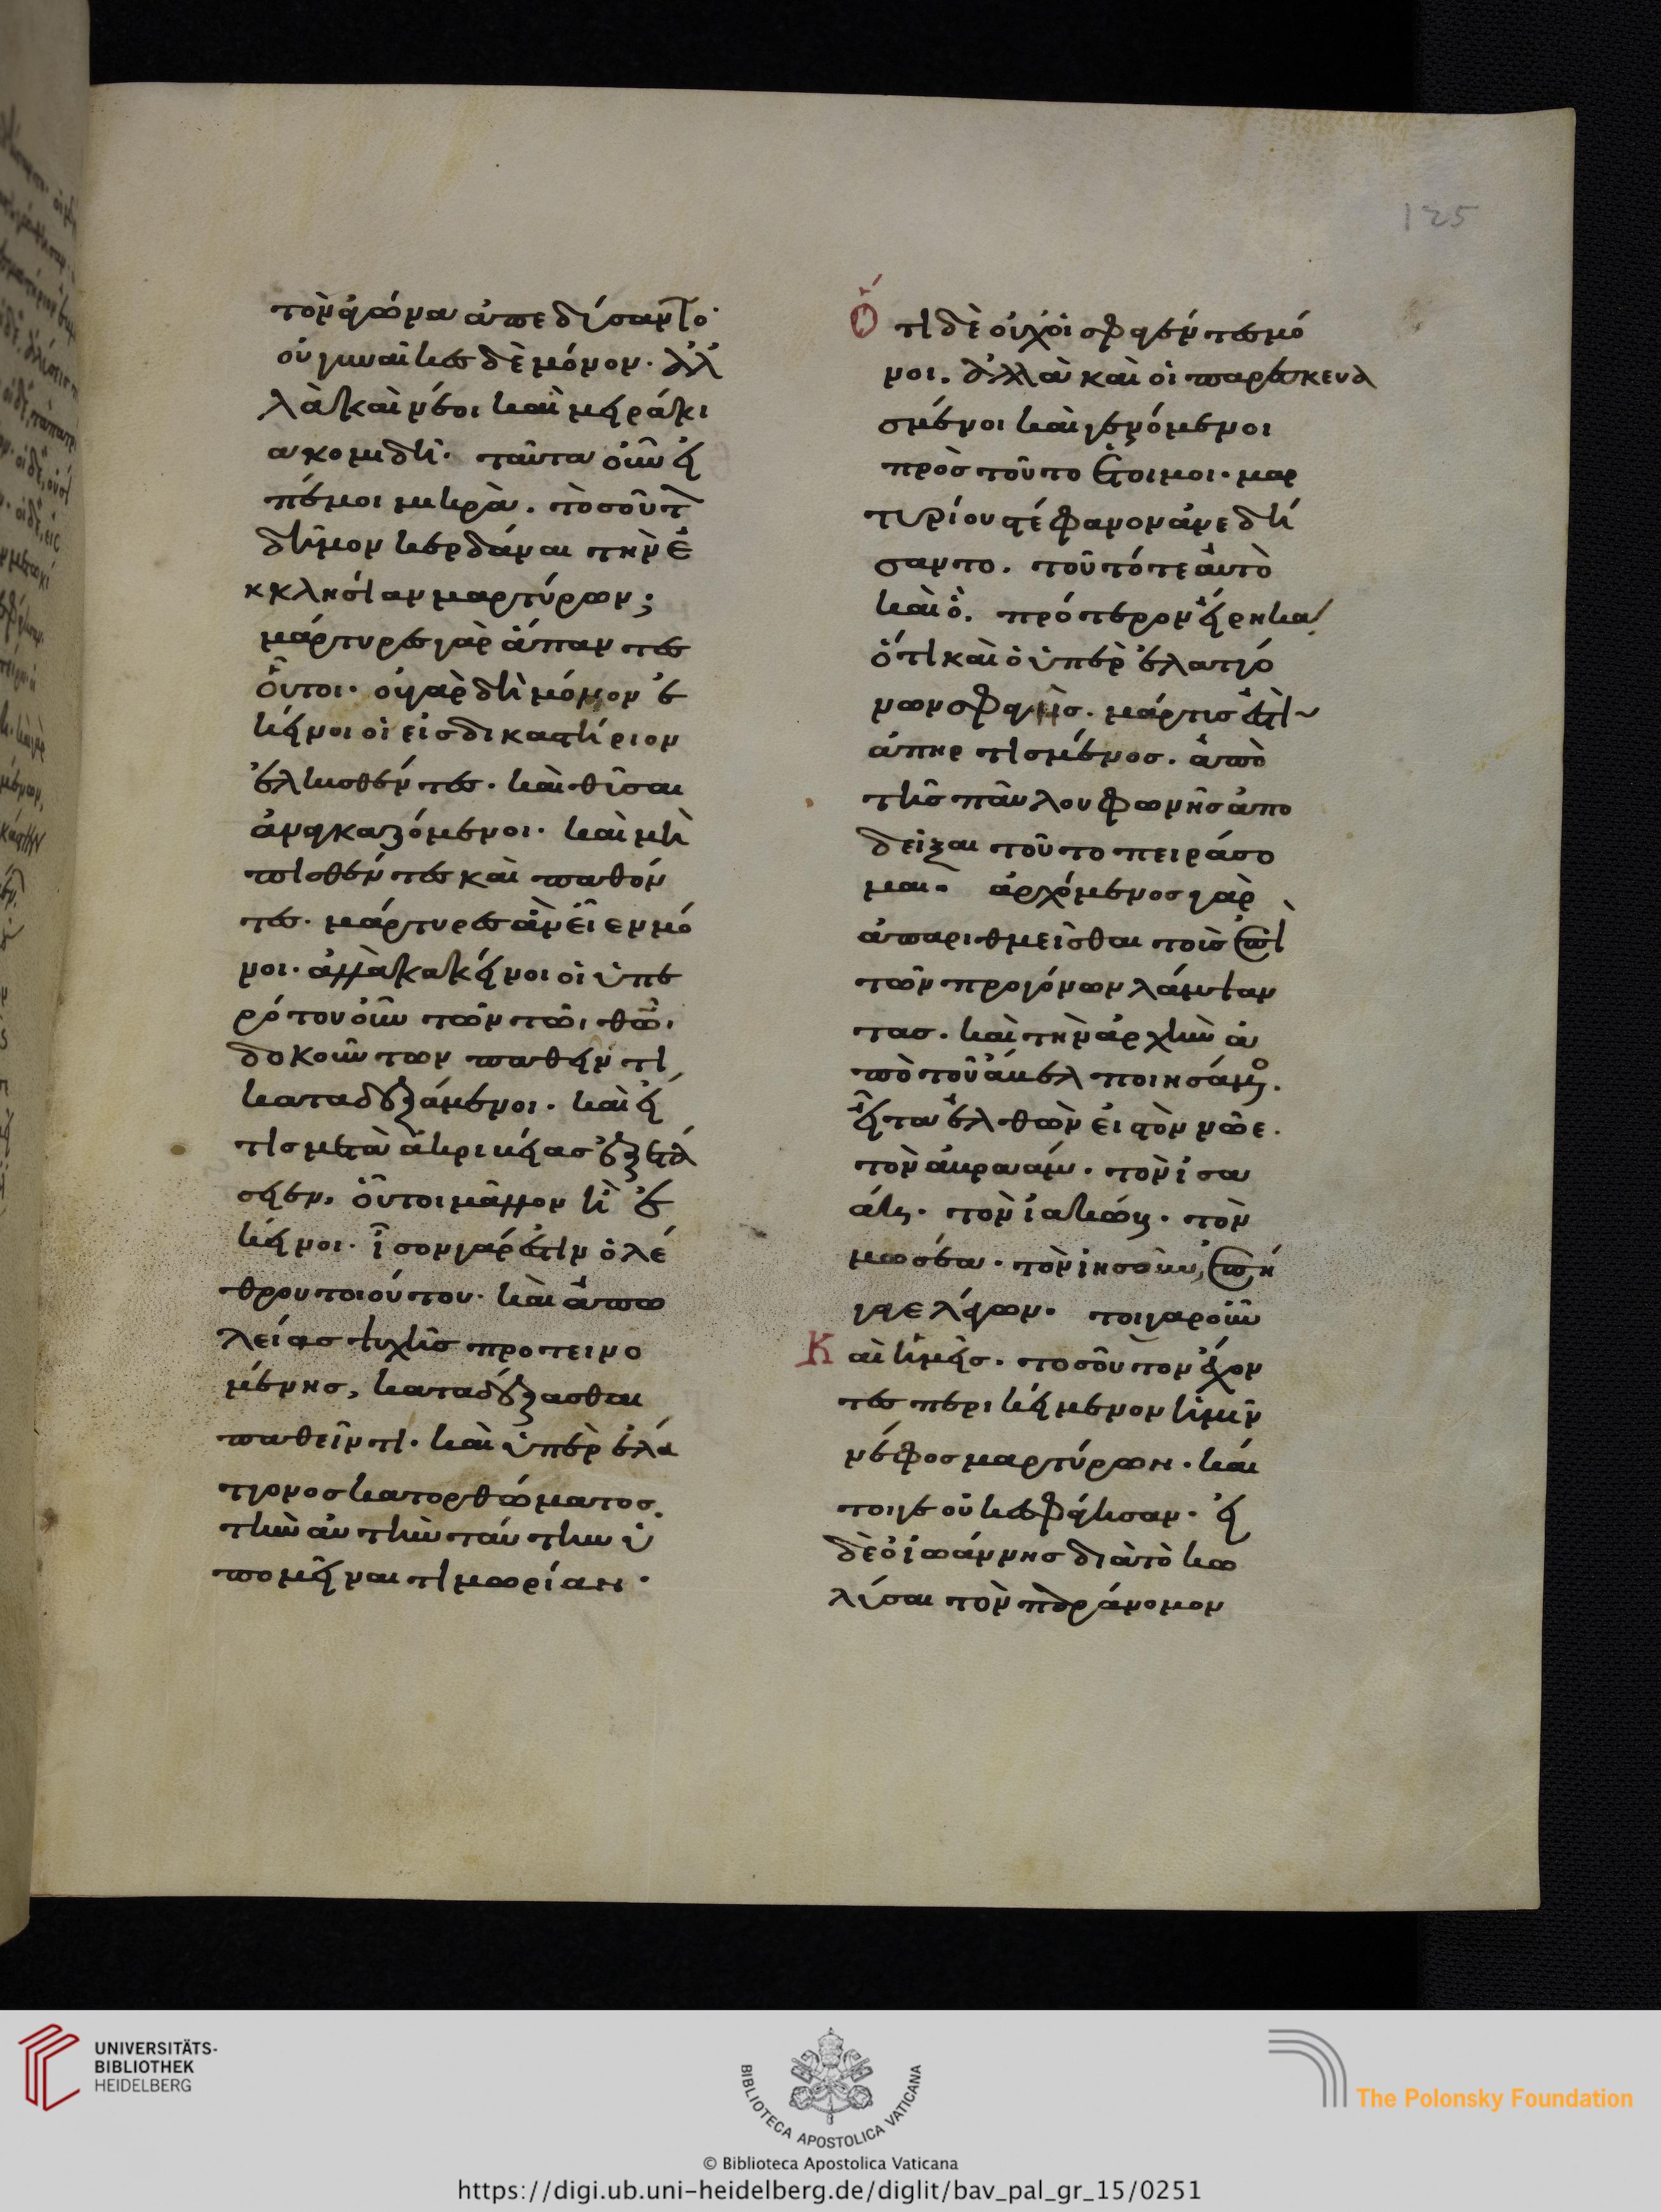 125
τὸν ἀγῶνα ἀπεδύσαντο·
οὐ γυναῖκες δὲ μόνον· ἀλ
λὰ καὶ νέοι καὶ μειράκι
α κομιδῆ· ταῦτα οὖν εἰ
πέ μοι μικρὰ. τοσοῦτ
δῆμον κερδάναι τὴν ἐ
κκλησίαν μαρτύρων;
μάρτυρες γὰρ ἅπαντες
οὗτοι· οὐ γὰρ δὴ μόνον ἐ
κείνοι οἱ εἰς δικαστήριον
ἑλκυσθέντες· καὶ θῦσαι
ἀναγκαζόμενοι· καὶ μὴ
πισθέντες καὶ παθόν
τες· μάρτυρες ἂν εἶεν μό
νοι· ἀλλὰ κακείνοι οἱ ὑπὲ
ρότουοῦν τῶν τῶι θῶι
δοκούντων παθεῖν τι
καταδεξάμενοι· καὶ εἴ
τις μετὰ ἀκριβείας ἐξετά
σειεν, οὗτοι μᾶλλον ἢ ἐ
κείνοι· ἶσον γάρ ἐστιν ὀλέ
θρου τοιούτου· καὶ ἀπω
λείας ψυχῆς προτεινο
μένης, καταδέξασθαι
παθεῖν τι· καὶ ὑπὲρ ἐλά
ττονος κατορθώματος
τὴν αὐτὴν ταύτην ὑ
πομεῖναι τιμωρίαν·
Ὅτι δὲ οὐχ οἱ σφαγέντες μό
νοι. ἀλλὰ καὶ οἱ παρασκευα
σμένοι καὶ γενόμενοι
πρὸς τοῦτο ἕτοιμοι· μαρ
τυρίου στέφανον ἀνεδή
σαντο. τοῦτό τε αὐτὸ
καὶ ὅ. πρότερον εἴρηκα
ὅτι καὶ ὁ ὑπὲρ ἐλαττό
νων σφαγεὶς. μάρτις ἐστὶ
ἀπηρτισμένος. ἀπὸ
τῆς παύλου φωνῆς ἀπο
δείξαι τοῦτο πειράσο
μαι· ἀρχόμενος γὰρ
ἀπαριθμεῖσθαι τοὺς ἐπὶ
τῶν προγόνων λάμψαν
τας. καὶ τὴν ἀρχὴν ἀ
πὸ τοῦ ἄμβελ ποιησάμενος.
εἶτα ἐλθὼν εἰς τὸν νῶε.
τὸν ἀβραάμ. τὸν ἰσα
άκ. τὸν ἰακώβ. τὸν
μωσέα. τὸν ἰησοῦν, ἐπή
γαγε λέγων· τοιγαροῦν
Καὶ ἡμεῖς. τοσοῦτον ἔχον
τες περικείμενον ἡμῖν
νέφος μαρτύρων. καί
τοιγε οὐκ ἐσφάγησαν· εἰ
δὲ ὁ ἰωάννης διὰ τὸ κω
λῦσαι τὸν παράνομον
UNIVERSITÄTS-
BIBLIOTHEK
HEIDELBERG
BIBLIOTECA APOSTOLICA VATICANA
The Polonsky Foundation
© Biblioteca Apostolica Vaticana
https://digi.ub.uni-heidelberg.de/diglit/bav_pal_gr_15/0251